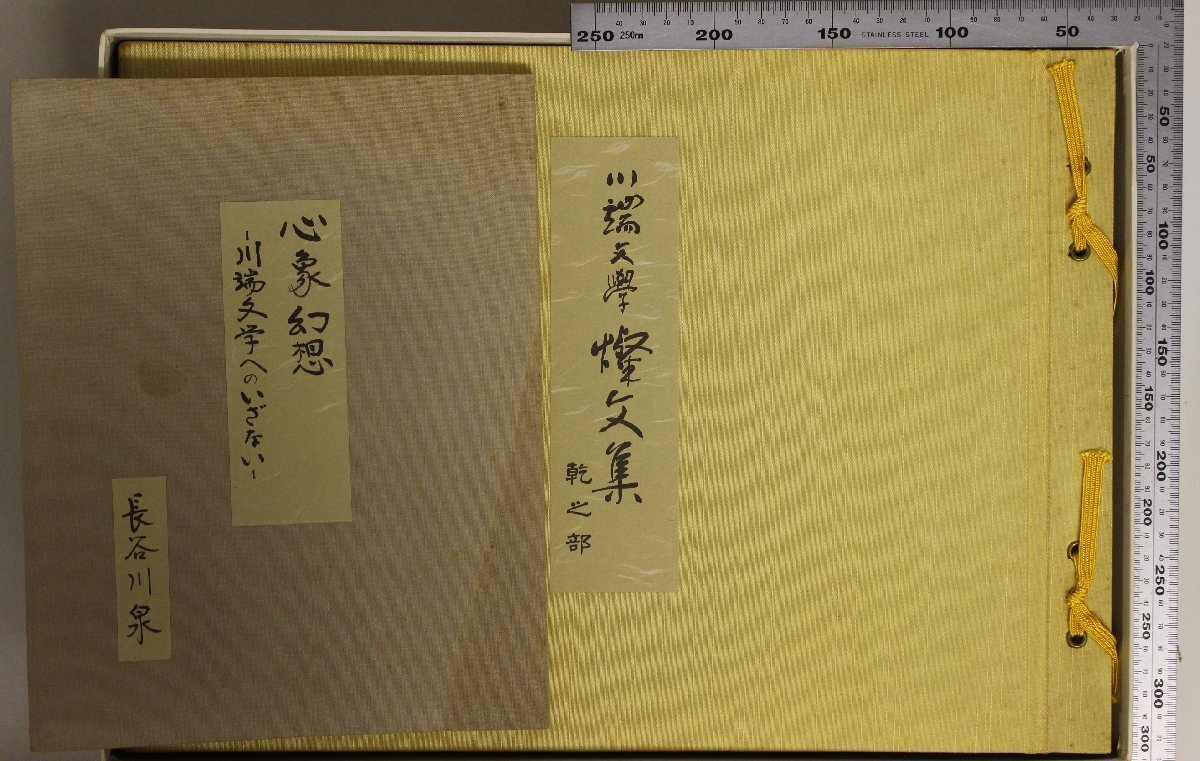 川端文學燦文集
乾之部
心象幻想
-川端文学へのいざない-
長谷川泉
250 250mm 200 150 STAINLESS STEEL 100 50
50 100 150 200 250 300
50 100 150 200 250 300